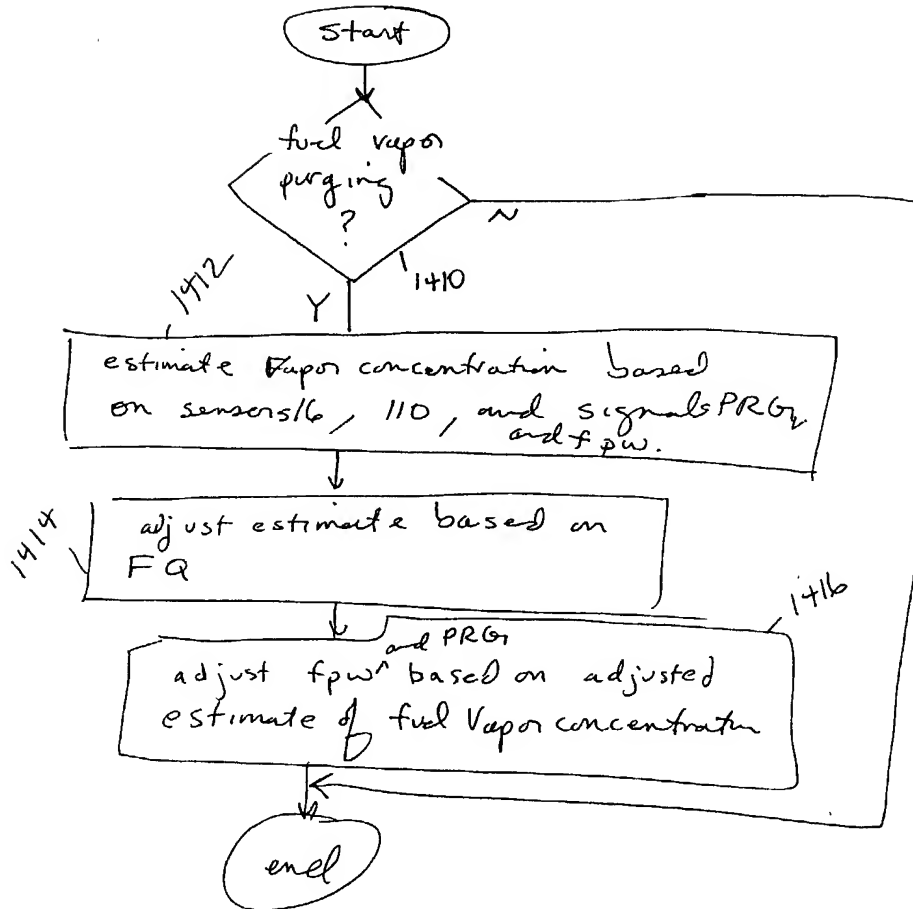 start
fuel vapor
purging
?
N
1410
Y
1412
estimate vapor concentration based
on sensers16, 110, and signalsPRG,
and fpw.
1414
adjust estimate based on
FQ
1416
and PRG
adjust fpw^ based on adjusted
estimate of fuel Vapor concentration
end